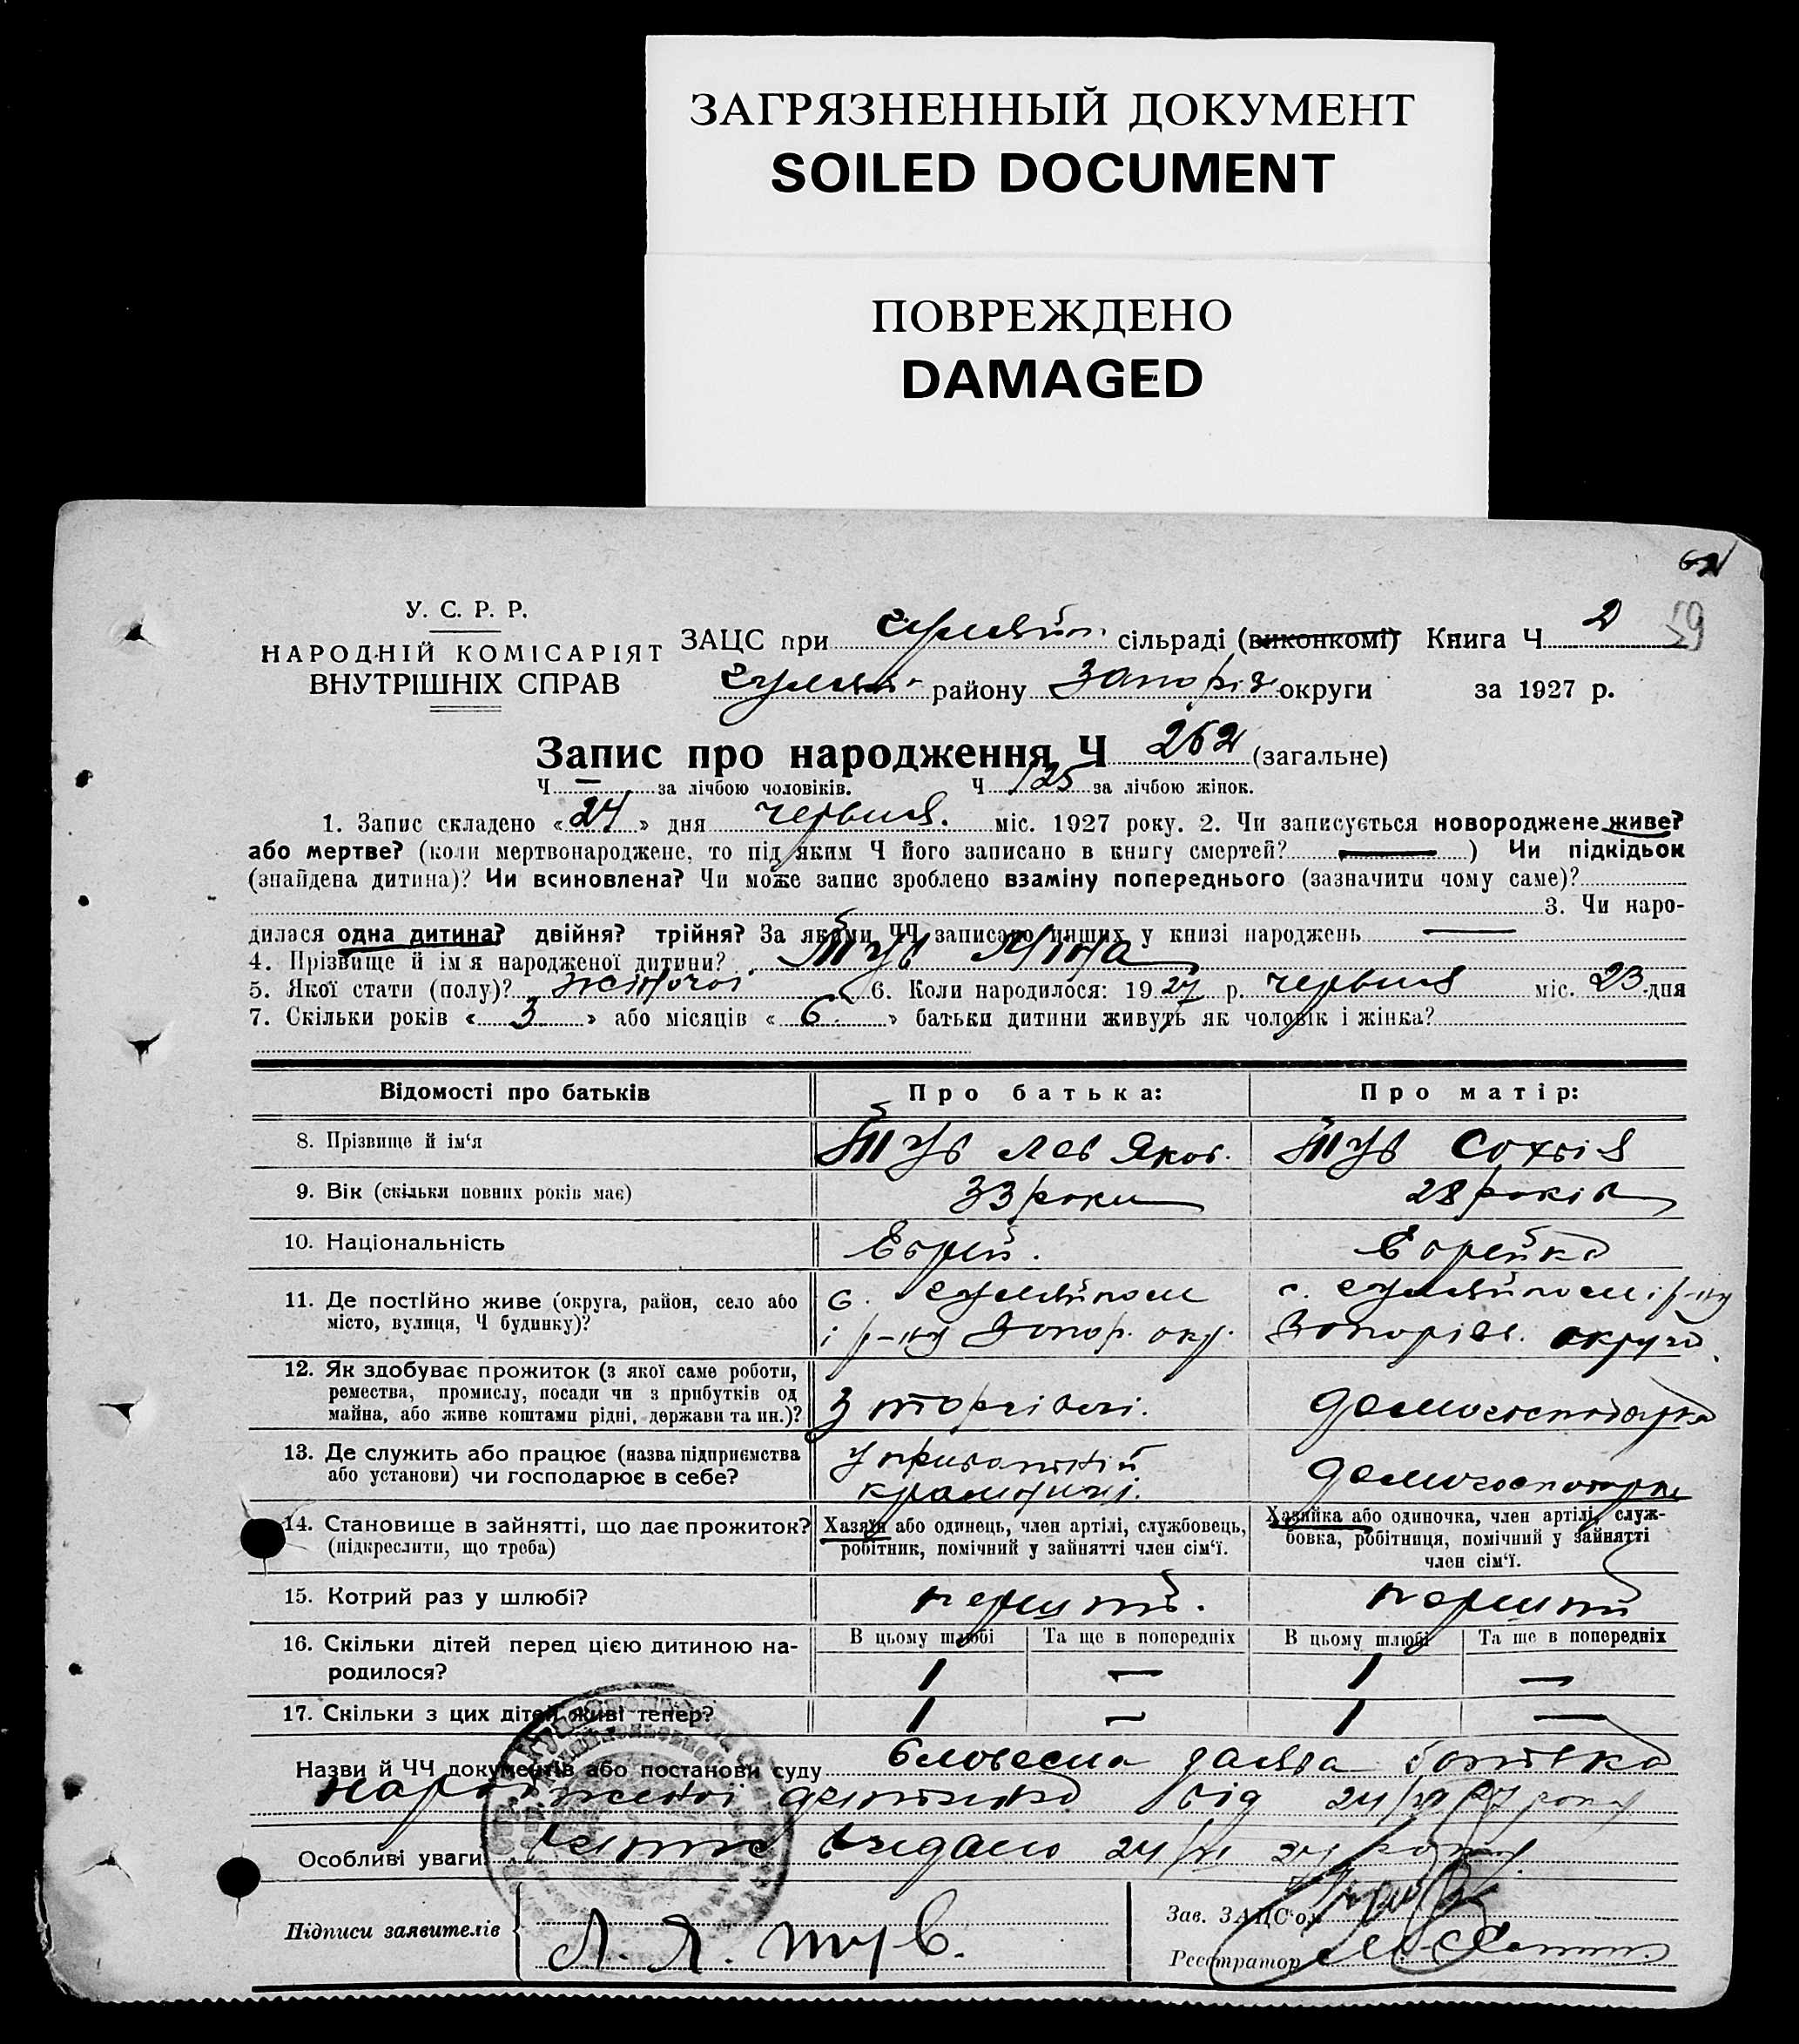 ЗАГРЯЗНЕННЫЙ ДОКУМЕНТ
SOILED DOCUMENT
ПОВРЕЖДЕНО
DAMAGED
62
59
У. С. Р. Р.
НАРОДНІЙ КОМІСАРІЯТ
ВНУТРІШНІХ СПРАВ
ЗАЦС при сільраді (виконкомі) Книга Ч 2
району Запоріз округи за 1927 р.
Запис про народження Ч 262 (загальне)
Ч — за лічбою чоловіків. Ч 125 за лічбою жінок.
1. Запис складено «24» дня червня. міс. 1927 року. 2. Чи записується новороджене живе?
або мертве? (коли мертвонароджене, то під яким Ч його записано в книгу смертей? — ) Чи підкідьок
(знайдена дитина)? Чи всиновлена? Чи може запис зроблено взаміну попереднього (зазначити чому саме)?
3. Чи наро-
дилася одна дитина? двійня? трійня? За якими ЧЧ записано инших у книзі народжень —
4. Прізвище й імя народженої дитини? Тув
5. Якої стати (полу)? жіночої 6. Коли народилося: 1927 р. червня міс. 23 дня
7. Скільки років «3» або місяців «6» батьки дитини живуть як чоловік і жінка?
Відомості про батьків Про батька: Про матір:
8. Прізвище й ім‘я Тув Лев Яков. Тув Софія
9. Вік (скільки повних років має) 33 роки 28 років
10. Національність Еврей. Еврейка
11. Де постійно живе (округа, район, село або
місто, вулиця, Ч будинку)?
с. Гуляйполе с. Гуляйполе і р-ну
і р-ну Запор. окр. Запорізь. округа
12. Як здобуває прожиток (з якої саме роботи,
ремества, промислу, посади чи з прибутків од
майна, або живе коштами рідні, держави та ин.)?
З торгівлі. домогосподарка
13. Де служить або працює (назва підприємства
або установи) чи господарює в себе?
у приватній
крамниці. домогосподарка
14. Становище в зайнятті, що дає прожиток?
(підкреслити, що треба)
Хазяїн або одинець, член артілі, службовець,
робітник, помічний у зайнятті член сім‘ї.
Хазяйка або одиночка, член артілі, служ-
бовка, робітниця, помічний у зайнятті
член сім‘ї.
15. Котрий раз у шлюбі? перший. перший
16. Скільки дітей перед цією дитиною на-
родилося?
В цьому шлюбі Та ще в попередніх В цьому шлюбі Та ще в попередніх
1 — 1 —
17. Скільки з цих дітей живі тепер? 1 — 1 —
Назви й ЧЧ документів або постанови суду Словесна заява батька
народженої дитини від 24/VI 27 року
Особливі уваги видано 24/VI 27 року.
Підписи заявителів Л. Я. Тув.
Зав. ЗАЦС‘ом
Реєстратор